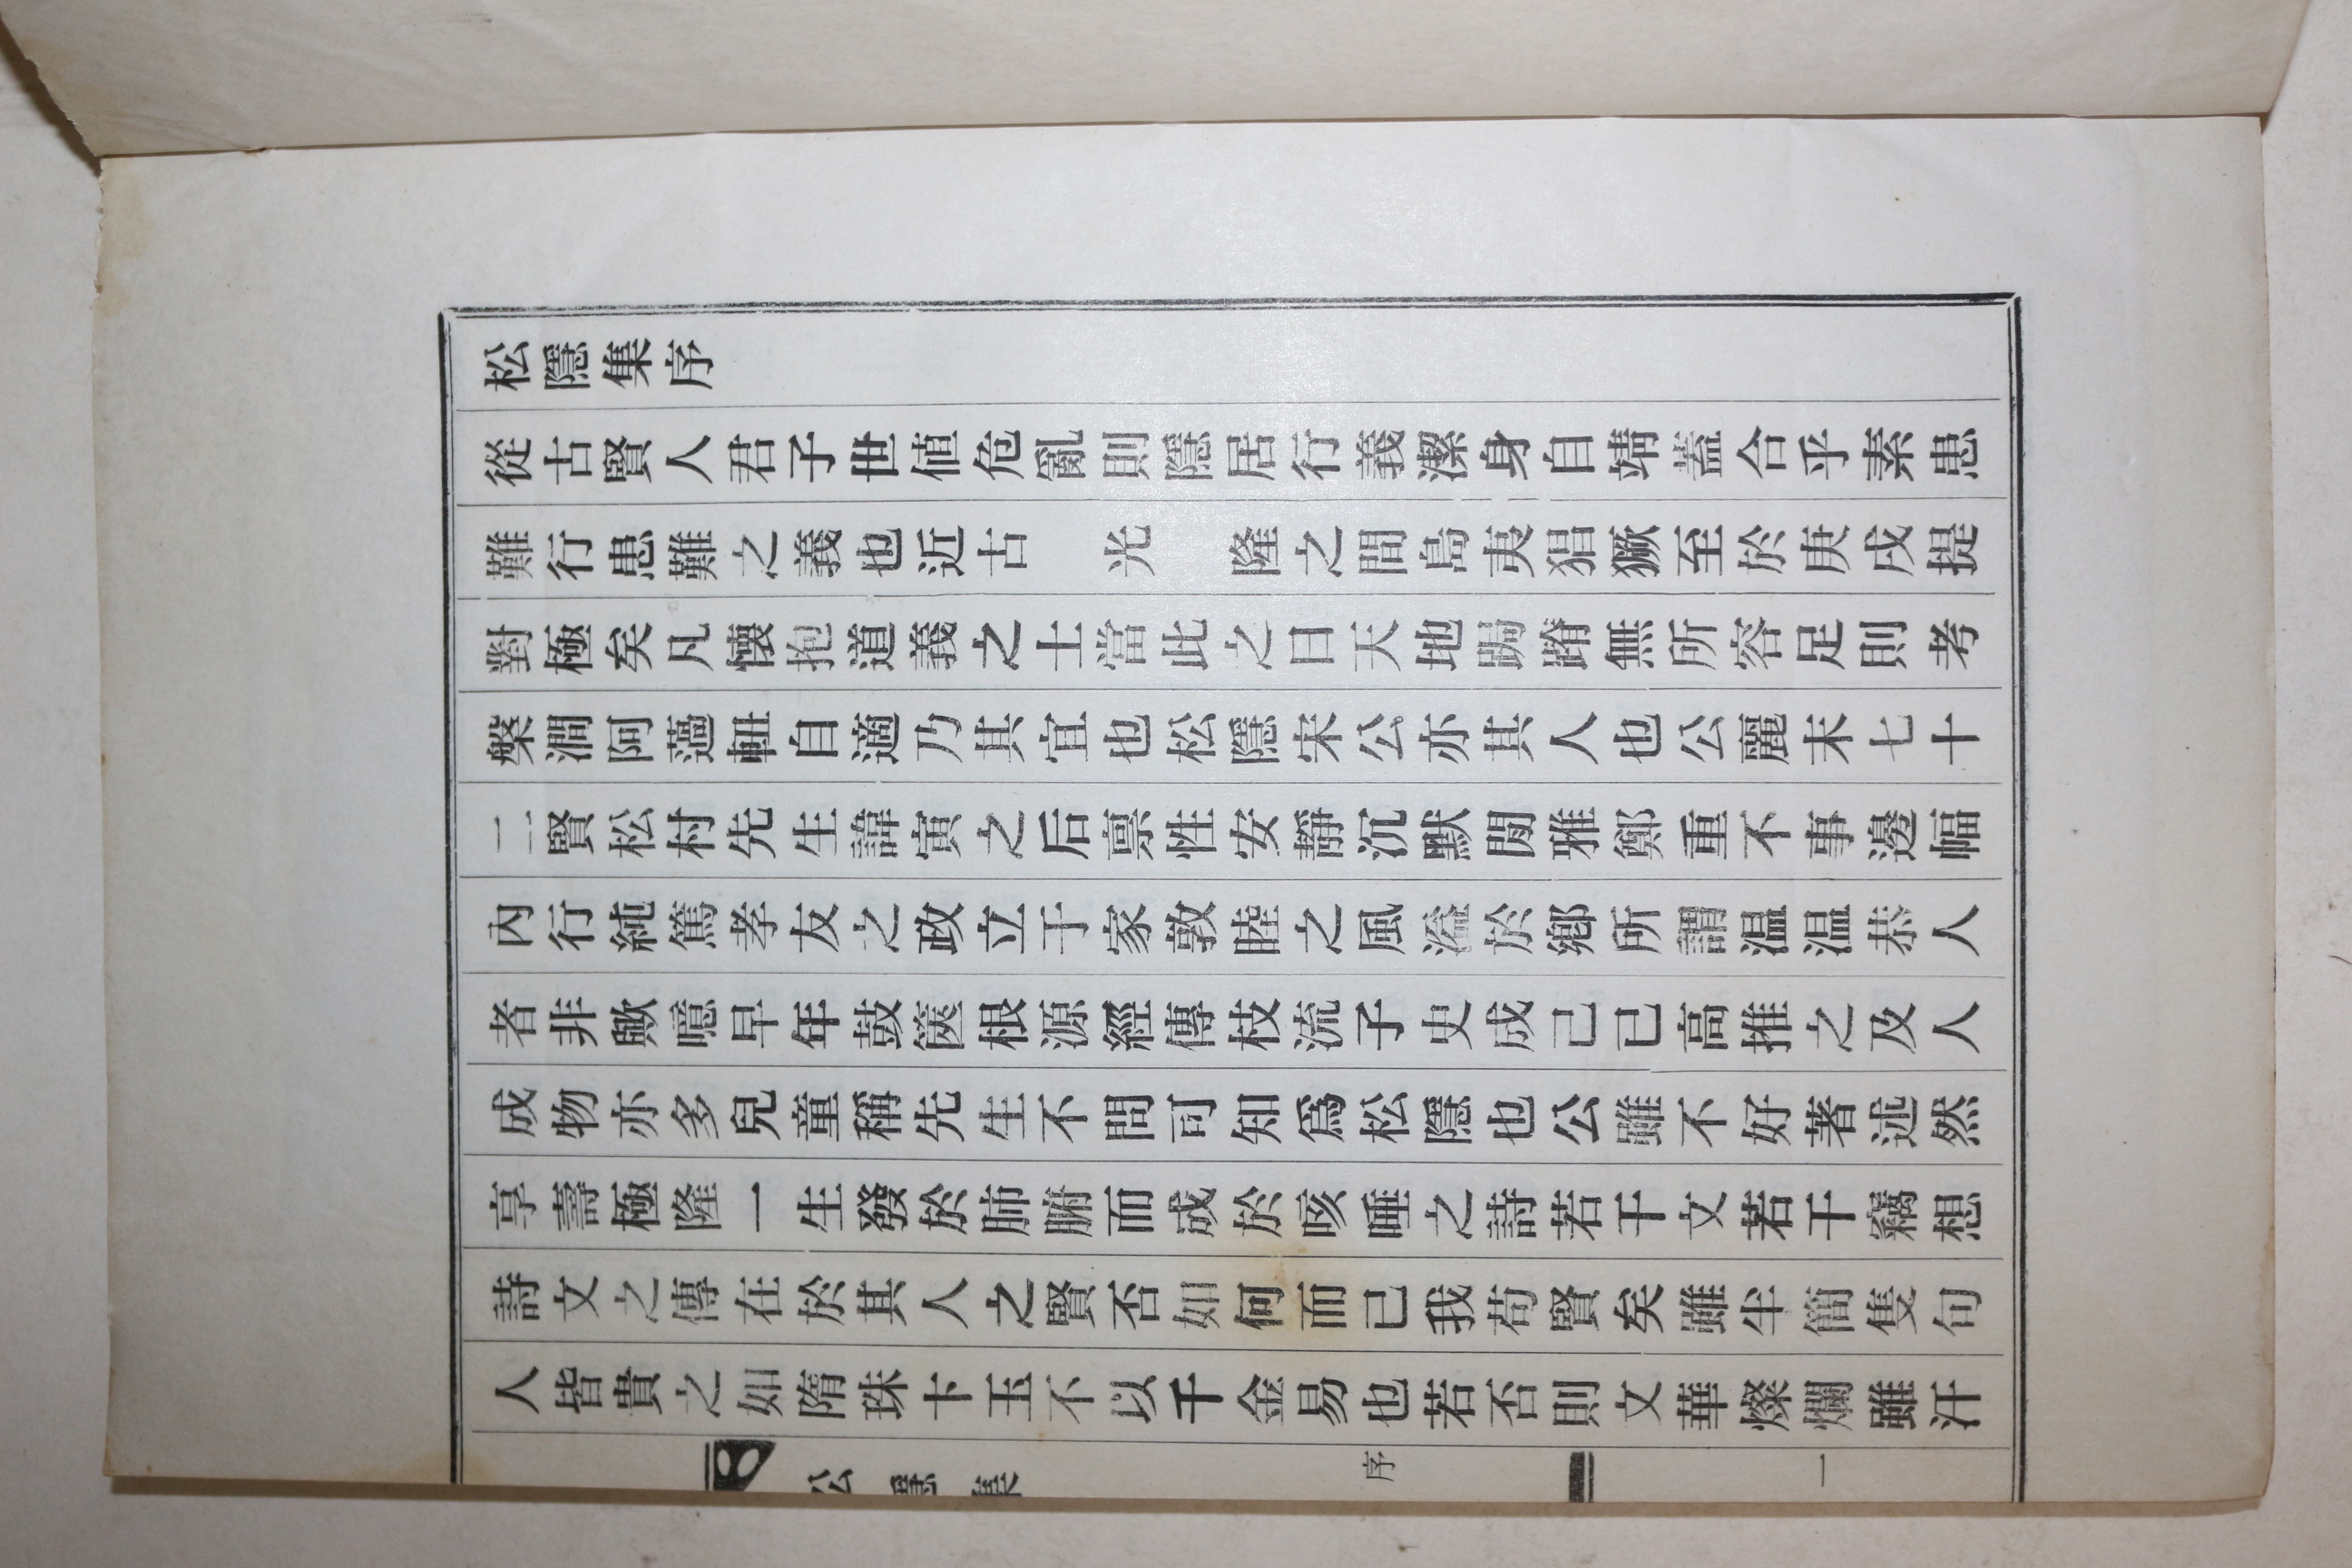 松隱集序
從古賢人君子世値危亂則隱居行義潔身自靖蓋合乎素患
難行患難之義也近古 光 隆之間島夷猖獗至於庚戌提
對極矣凡懷抱道義之士當此之日天地跼蹐無所容足則考
槃澗阿薖軸自適乃其宜也松隱宋公亦其人也公麗末七十
二賢松村先生諱寅之后禀性安靜沉默閒雅鄭重不事邊幅
內行純篤孝友之政立于家敦睦之風溢於鄕所謂温温恭人
者非歟噫早年鼓篋根源經傳枝流子史成己已高推之及人
成物亦多兒童稱先生不問可知爲松隱也公雖不好著述然
享壽極隆一生發於肺腑而成於咳唾之詩若干文若干竊想
詩文之傳在於其人之賢否如何而已我苟賢矣雖半簡隻句
人皆貴之如隋珠卞玉不以千金易也若否則文華燦爛雖汗
松隱集
序
一